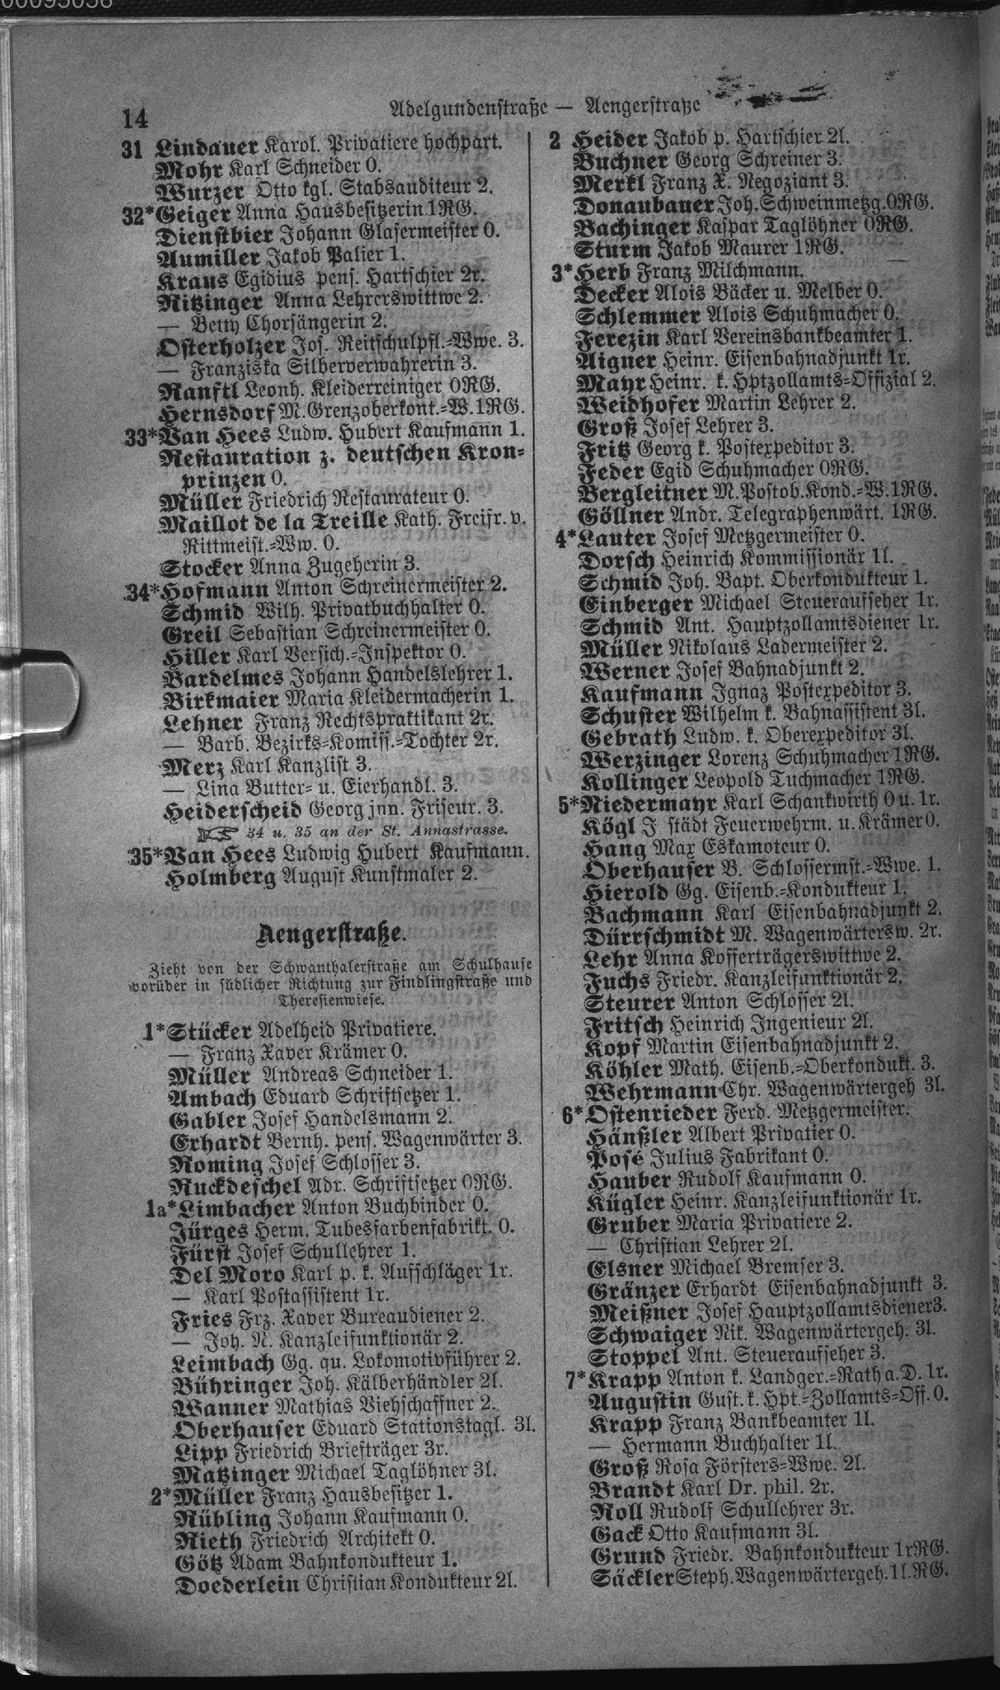 14
Adelgundenstraße — Aengerstraße
31 Lindauer Karol. Privatiere hochpart.
Mohr Karl Schneider 0.
Wurzer Otto kgl. Stabsauditeur 2.
32*Geiger Anna Hausbesitzerin 1RG.
Dienstbier Johann Glasermeister 0.
Aumiller Jakob Palier 1.
Kraus Egidius pens. Hartschier 2r.
Ritzinger Anna Lehrerswittwe 2.
— Betty Chorsängerin 2.
Osterholzer Jos. Reitschulpfl.-Wwe. 3.
— Franziska Silberverwahrerin 3.
Ranftl Leonh. Kleiderreiniger 0RG.
Hernsdorf M. Grenzoberkont.-W. 1RG.
33*Van Hees Ludw. Hubert Kaufmann 1.
Restauration z. deutschen Kron-
prinzen 0.
Müller Friedrich Restaurateur 0.
Maillot de la Treille Kath. Freifr. v.
Rittmeist.-Ww. 0.
Stocker Anna Zugeherin 3.
34*Hofmann Anton Schreinermeister 2.
Schmid Wilh. Privatbuchhalter 0.
Greil Sebastian Schreinermeister 0.
Hiller Karl Versich.-Inspektor 0.
Bardelmes Johann Handelslehrer 1.
Birkmaier Maria Kleidermacherin 1.
Lehner Franz Rechtspraktikant 2r.
— Barb. Bezirks-Komiss.-Tochter 2r.
Merz Karl Kanzlist 3.
— Lina Butter- u. Eierhandl. 3.
Heiderscheid Georg jnn. Friseur. 3.
☞ 34 u. 35 an der St. Annastrasse.
35*Van Hees Ludwig Hubert Kaufmann.
Holmberg August Kunstmaler 2.
Aengerstraße.
Zieht von der Schwanthalerstraße am Schulhause
vorüber in südlicher Richtung zur Findlingstraße und
Theresienwiese.
1*Stücker Adelheid Privatiere.
— Franz Xaver Krämer 0.
Müller Andreas Schneider 1.
Ambach Eduard Schriftsetzer 1.
Gabler Josef Handelsmann 2.
Erhardt Bernh. pens. Wagenwärter 3.
Roming Josef Schlosser 3.
Ruckdeschel Adr. Schriftsetzer 0RG.
1a*Limbacher Anton Buchbinder 0.
Jürges Herm. Tubesfarbenfabrikt. 0.
Fürst Josef Schullehrer 1.
Del Moro Karl p. k. Aufschläger 1r.
— Karl Postassistent 1r.
Fries Frz. Xaver Bureaudiener 2.
— Joh. N. Kanzleifunktionär 2.
Leimbach Gg. qu. Lokomotivführer 2.
Bühringer Joh. Kälberhändler 2l.
Wanner Mathias Viehschaffner 2.
Oberhauser Eduard Stationstagl. 3l.
Lipp Friedrich Briefträger 3r.
Matzinger Michael Taglöhner 3l.
2*Müller Franz Hausbesitzer 1.
Nübling Johann Kaufmann 0.
Rieth Friedrich Architekt 0.
Götz Adam Bahnkondukteur 1.
Doederlein Christian Kondukteur 2l.
2 Heider Jakob p. Hartschier 2l.
Buchner Georg Schreiner 3.
Merkl Franz X. Negoziant 3.
Donaubauer Joh. Schweinmetzg. 0RG.
Bachinger Kaspar Taglöhner 0RG.
Sturm Jakob Maurer 1RG.
3*Herb Franz Milchmann.
Decker Alois Bäcker u. Melber 0.
Schlemmer Alois Schuhmacher 0.
Ferezin Karl Vereinsbankbeamter 1.
Aigner Heinr. Eisenbahnadjunkt 1r.
Mayr Heinr. k. Hptzollamts-Offizial 2.
Weidhofer Martin Lehrer 2.
Groß Josef Lehrer 3.
Fritz Georg k. Postexpeditor 3.
Feder Egid Schuhmacher 0RG.
Bergleitner M. Postob. Kond.-W. 1RG.
Göllner Andr. Telegraphenwärt. 1RG.
4*Lauter Josef Metzgermeister 0.
Dorsch Heinrich Kommissionär 1l.
Schmid Joh. Bapt. Oberkondukteur 1.
Einberger Michael Steueraufseher 1r.
Schmid Ant. Hauptzollamtsdiener 1r.
Müller Nikolaus Ladermeister 2.
Werner Josef Bahnadjunkt 2.
Kaufmann Ignaz Postexpeditor 3.
Schuster Wilhelm k. Bahnassistent 3l.
Gebrath Ludw. k. Oberexpeditor 3l.
Werzinger Lorenz Schuhmacher 1RG.
Kollinger Leopold Tuchmacher 1RG.
5*Niedermayr Karl Schankwirth 0 u. 1r.
Kögl J städt Feuerwehrm. u. Krämer 0.
Hang Max Eskamoteur 0.
Oberhauser B. Schlossermst.-Wwe. 1.
Hierold Gg. Eisenb.-Kondukteur 1.
Bachmann Karl Eisenbahnadjunkt 2.
Dürrschmidt M. Wagenwärtersw. 2r.
Lehr Anna Kofferträgerswittwe 2.
Fuchs Friedr. Kanzleifunktionär 2.
Steurer Anton Schlosser 2l.
Fritsch Heinrich Ingenieur 2l.
Kopf Martin Eisenbahnadjunkt 2.
Köhler Math. Eisenb.-Oberkondukt. 3.
Wehrmann Chr. Wagenwärtergeh 3l.
6*Ostenrieder Ferd. Metzgermeister.
Hänßler Albert Privatier 0.
Posé Julius Fabrikant 0.
Hauber Rudolf Kaufmann 0.
Kügler Heinr. Kanzleifunktionär 1r.
Gruber Maria Privatiere 2.
— Christian Lehrer 2l.
Elsner Michael Bremser 3.
Gränzer Erhardt Eisenbahnadjunkt 3.
Meißner Josef Hauptzollamtsdiener 3.
Schwaiger Nik. Wagenwärtergeh. 3l.
Stoppel Ant. Steueraufseher 3.
7*Krapp Anton k. Landger.-Rath a. D. 1r.
Augustin Gust. k. Hpt.-Zollamts-Off. 0.
Krapp Franz Bankbeamter 1l.
— Hermann Buchhalter 1l.
Groß Rosa Försters-Wwe. 2l.
Brandt Karl Dr. phil. 2r.
Roll Rudolf Schullehrer 3r.
Gack Otto Kaufmann 3l.
Grund Friedr. Bahnkondukteur 1rRG.
Säckler Steph. Wagenwärtergeh. 1l.RG.